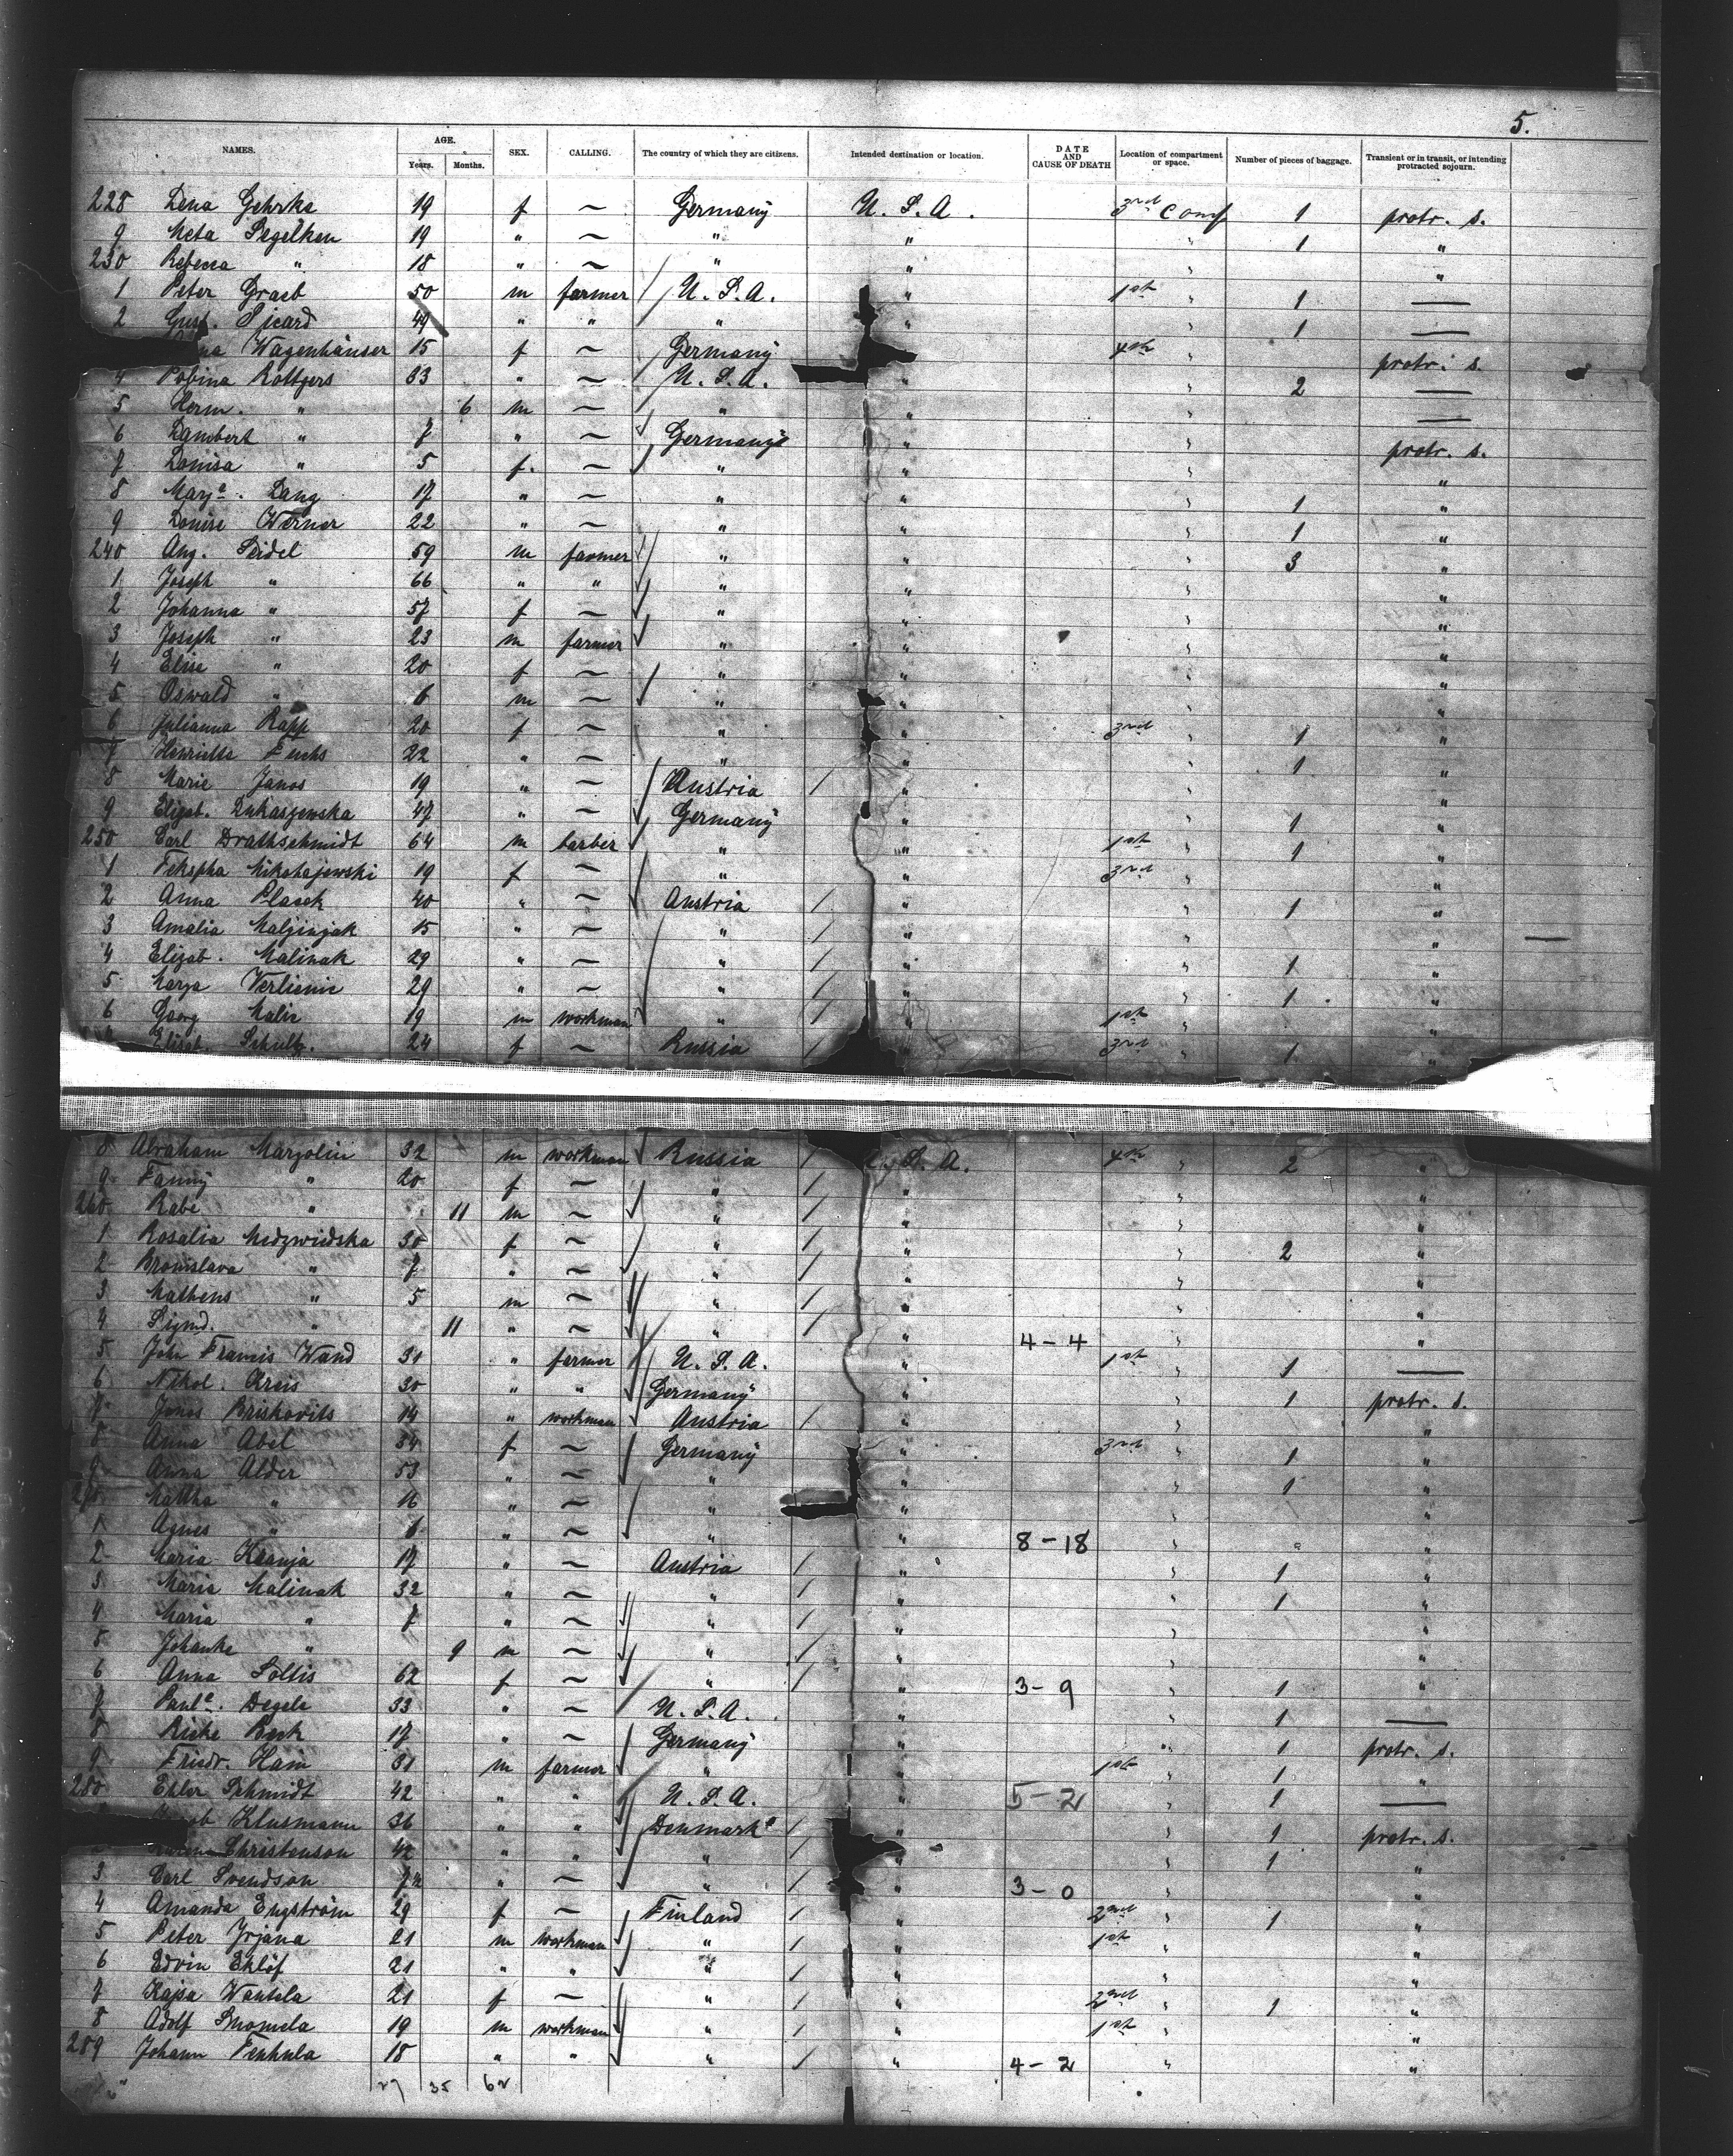 5.
NAMES. AGE. Years. Months. SEX. CALLING. The country of which they are citizens. Intended destination or location. DATE AND CAUSE OF DEATH Location of compartment or space. Number of pieces of baggage. Transient or in transit, or intending protracted sojourn.
228 Lena Gehrke 19 f — Germany U. S. A. 3rd Comp 1 protr. s.
9 Meta Segelken 19 " — " " " 1 "
230 Rebecca " 18 " — " " " "
1 Peter Graeb 50 m farmer U. S. A. " 1st " 1 —
2 Gust. Sicard 49 " " " " " 1 —
Wagenhäuser 15 f — Germany " 4th " protr. s.
4 Robina Röttgers 33 " — U. S. A. " " 2 —
5 Herm. " 6 m — " " " —
6 Lambert " 7 " — Germany " " protr. s.
7 Louisa " 5 f. — " " " "
8 Marga. Lang 17 " — " " " 1 "
9 Louise Werner 22 " — " " " 1 "
240 Aug. Seidel 59 m farmer " " " 3 "
1 Joseph " 66 " " " " " "
2 Johanna " 57 f — " " " "
3 Joseph " 23 m farmer " " " "
4 Elise " 20 f — " " " "
5 Oswald " 6 m — " " " "
6 Julianna Rapp 20 f — " " 3rd " 1 "
7 Henrietta Fuchs 22 " — " " " 1 "
8 Marie Janos 19 " — Austria " " "
9 Elizab. Lukaszewska 47 " — Germany " " 1 "
250 Carl Drathschmidt 64 m barber " " 1st " 1 "
1 Mikohajewski 19 f — " " 3rd " "
2 Anna Plasek 40 " — Austria " " 1 "
3 Amalia Malzinjak 15 " — " " " " —
4 Elizab. Malinak 29 " — " " " 1 "
5 Marya Verlienic 29 " — " " " 1 "
6 Georg Malic 19 m workman " " 1st " "
Elisab. Schultz. 24 f — Russia " 3rd " 1 "
8 Abraham Margolin 32 m workman Russia S. A. 4th " 2 "
9 Fanny " 20 f — " " " "
260 Rabe " 11 m — " " " "
1 Rosalia Medzwiedska 30 f — " " " 2 "
2 Bronislava " 7 " — " " " "
3 Matheus " 5 m — " " " "
4 Sigmd. " 11 " — " " 4-4 " "
5 John Francis Wand 31 " farmer U. S. A. " 1st " 1 —
6 Nikol. Kreis 30 " " Germany " " 1 protr. s.
7 Janos Briskovits 14 " workman Austria " " "
8 Anna Abel 34 f — Germany " 3rd " 1 "
9 Anna Alder 53 " — " " " 1 "
270 Martha " 16 " — " " " "
1 Agnes " 6 " — " " 8-18 " "
2 Maria Hranja 17 " — Austria " " 1 "
3 Maria Malinak 32 " — " " " 1 "
4 Maria " 7 " — " " " "
5 Johanke " 9 m — " " " "
6 Anna Soltis 62 f — " " 3-9 " 1 "
7 Paula. Degele 33 " — U. S. A. " " 1 —
8 Rieke Beck 17 " — Germany " " 1 protr. s.
9 Friedr. Hain 31 m farmer " " 1st " 1 "
280 Ehler Schmidt 42 " " U. S. A. " 5-2 " 1 —
Klusmann 36 " " Denmark " " 1 protr. s.
Christenson 42 " " " " " 1 "
3 Carl Svendson " — " " 3-0 " "
4 Amanda Engström 29 f — Finland " 2nd " 1 "
5 Peter Yrjana 21 m workman " " 1st " "
6 Edvin Eklöf 21 " " " " " "
7 Kajsa Wantala 21 f — " " 2nd " 1 "
8 Adolf Suomela 19 m workman " " 1st " "
289 Johann Tenhula 18 " " " " 4-2 " "
27 35 62